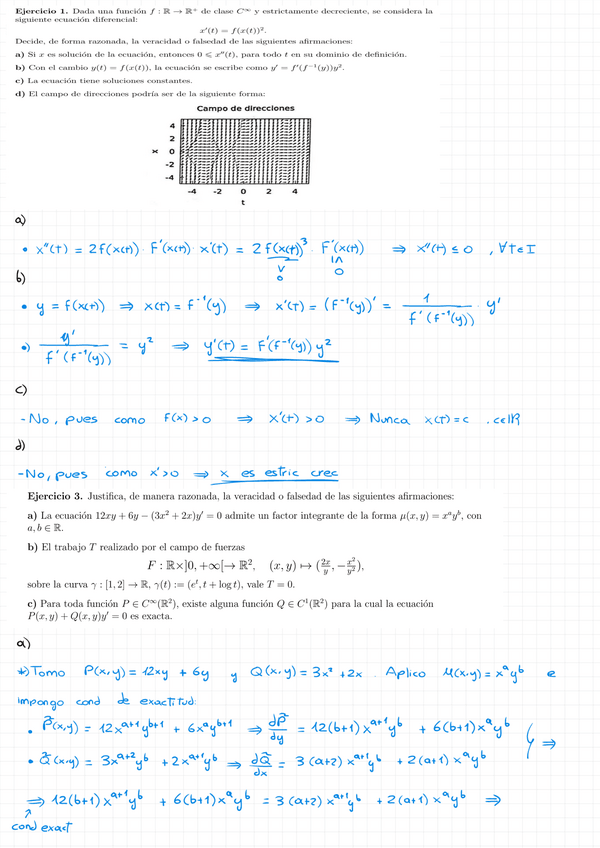 Ejercicio 1. Dada una función f : ℝ → ℝ⁺ de clase C^∞ y estrictamente decreciente, se considera la
siguiente ecuación diferencial:
x'(t) = f(x(t))².
Decide, de forma razonada, la veracidad o falsedad de las siguientes afirmaciones:
a) Si x es solución de la ecuación, entonces 0 ⩽ x''(t), para todo t en su dominio de definición.
b) Con el cambio y(t) = f(x(t)), la ecuación se escribe como y' = f'(f⁻¹(y))y².
c) La ecuación tiene soluciones constantes.
d) El campo de direcciones podría ser de la siguiente forma:
Campo de direcciones
4
2
x 0
-2
-4
-4 -2 0 2 4
t
a)
• x''(t) = 2f(x(t)) · F'(x(t)) · x'(t) = 2 f(x(t))³ · F'(x(t)) ⇒ x''(t) ≤ 0 , ∀t∈I
∨ 0
∧ 0
b)
• y = f(x(t)) ⇒ x(t) = f⁻¹(y) ⇒ x'(t) = (f⁻¹(y))' = 1 / f'(f⁻¹(y)) · y'
•) y' / f'(f⁻¹(y)) = y² ⇒ y'(t) = F'(f⁻¹(y)) y²
c)
- No, pues como F(x) > 0 ⇒ x'(t) > 0 ⇒ Nunca x(t) = c , c∈ℝ
d)
- No, pues como x' > 0 ⇒ x es estric crec
Ejercicio 3. Justifica, de manera razonada, la veracidad o falsedad de las siguientes afirmaciones:
a) La ecuación 12xy + 6y − (3x² + 2x)y' = 0 admite un factor integrante de la forma μ(x, y) = xᵃyᵇ, con
a, b ∈ ℝ.
b) El trabajo T realizado por el campo de fuerzas
F : ℝ×]0, +∞[→ ℝ², (x, y) ↦ (2x/y, −x²/y²),
sobre la curva γ : [1, 2] → ℝ, γ(t) := (eᵗ, t + log t), vale T = 0.
c) Para toda función P ∈ C^∞(ℝ²), existe alguna función Q ∈ C¹(ℝ²) para la cual la ecuación
P(x, y) + Q(x, y)y' = 0 es exacta.
a)
*) Tomo P(x,y) = 12xy + 6y y Q(x,y) = 3x² + 2x . Aplico μ(x,y) = xᵃyᵇ e
impongo cond de exactitud:
• P̃(x,y) = 12xᵃ⁺¹yᵇ⁺¹ + 6xᵃyᵇ⁺¹ ⇒ dP̃/dy = 12(b+1)xᵃ⁺¹yᵇ + 6(b+1)xᵃyᵇ
• Q̃(x,y) = 3xᵃ⁺²yᵇ + 2xᵃ⁺¹yᵇ ⇒ dQ̃/dx = 3(a+2)xᵃ⁺¹yᵇ + 2(a+1)xᵃyᵇ } ⇒
⇒ 12(b+1)xᵃ⁺¹yᵇ + 6(b+1)xᵃyᵇ = 3(a+2)xᵃ⁺¹yᵇ + 2(a+1)xᵃyᵇ ⇒
↑
cond exact